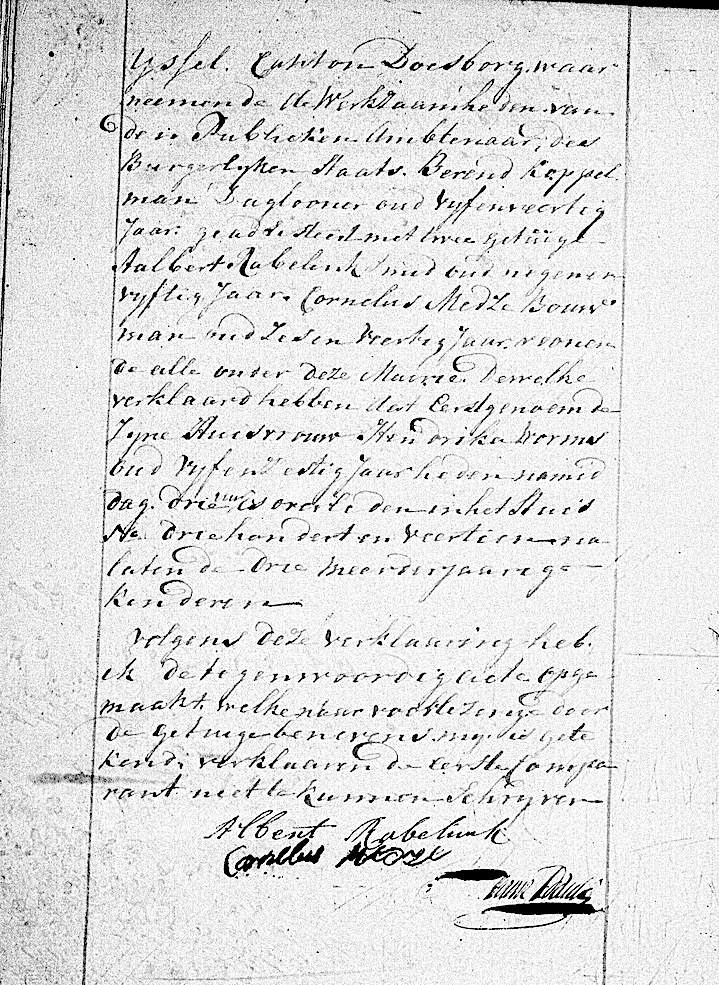 Yssel. Canton Doesborg, waar
neemende de Werkzaamheden van
den Publieken Ambtenaar, des
Burgerlyken Staats. Berend Koppel
man Daglooner oud Vyfenveertig
Jaar. geadsisteert met twee getuige
Aalbert Rabelink Smid oud negenen
vyftig Jaar. Cornelus Medze Bouw
man oud Zesen Veertig Jaar. woonen
de alle onder deze Mairie. Dewelke
verklaard hebben dat Eerstgenoemde
Zyne Huisvrouw Hendrika Worms
oud Vyfenzestig Jaar heden namid
dag. drie uur is overleden in het Huis
No. driehondert en Veertien na
latende drie meerderjaarige
kinderen
Volgens deze verklaaring heb.
ik de tegenwoordig acte opge
maakt, welke naar voorlezing door
de getuige benevens my is gete
kend, verklaarende eerste Compa
rant niet te kunnen Schryven
Albert Rabelink
Cornelus Medze